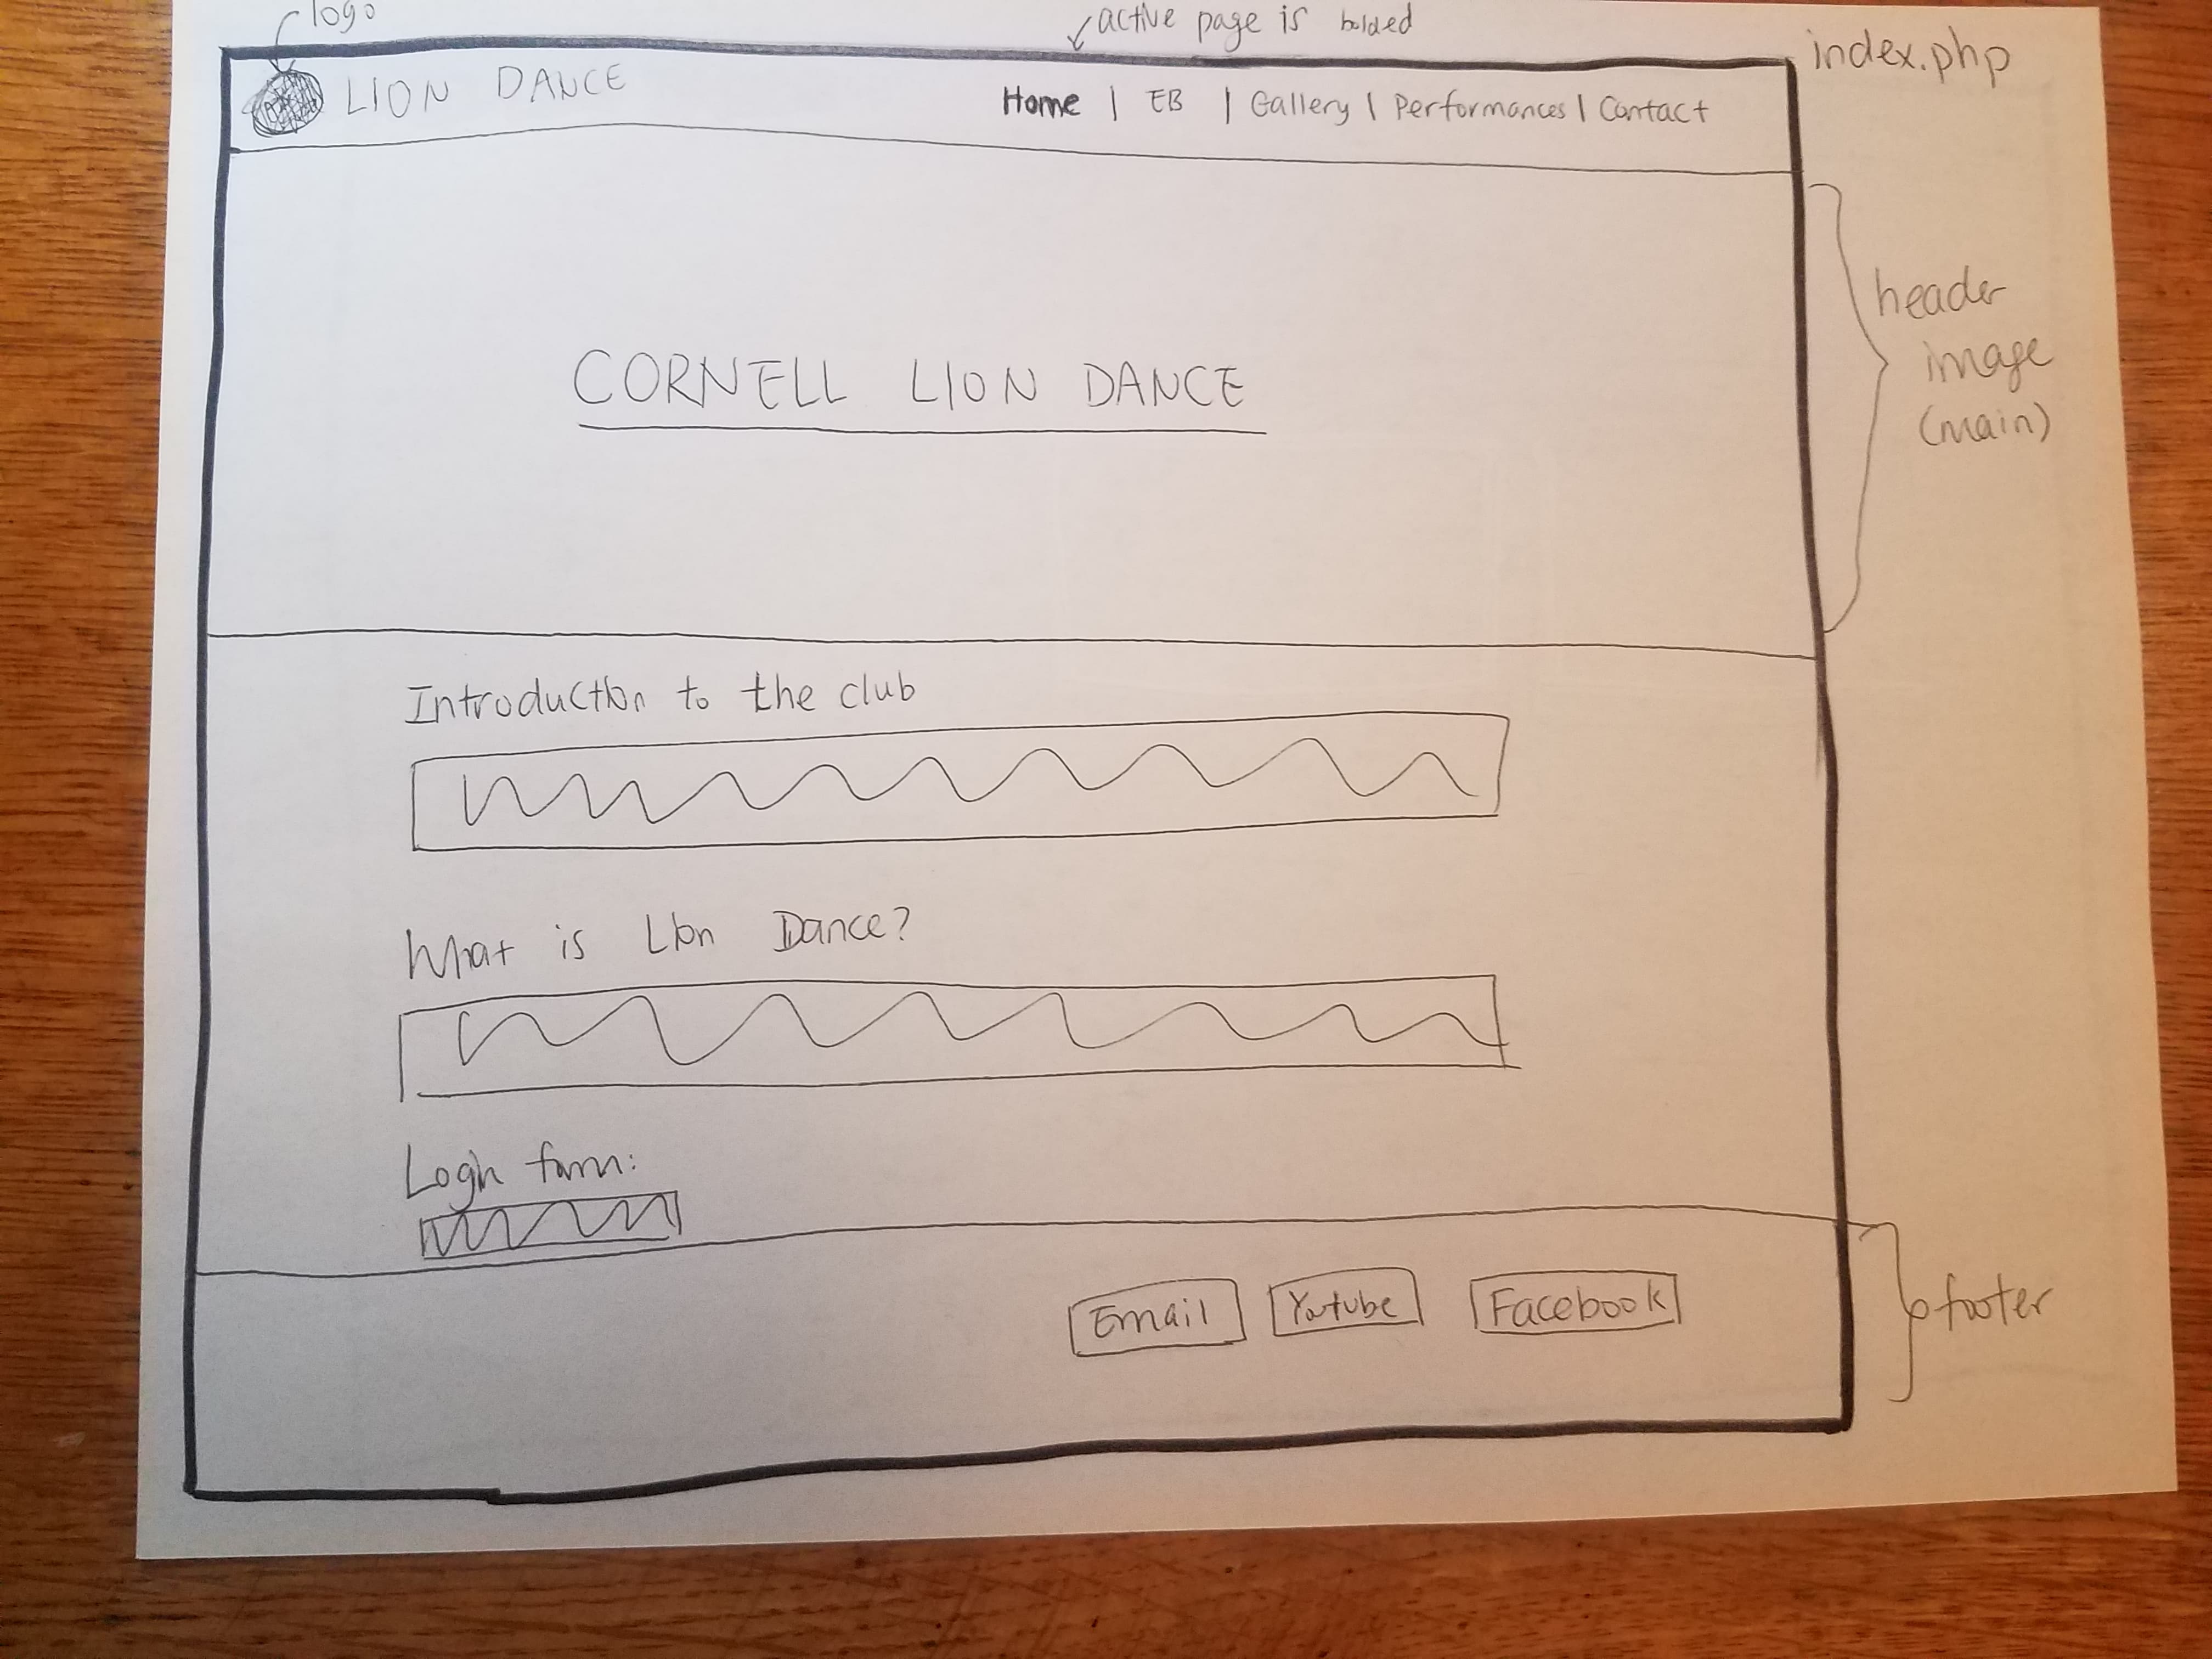 logo
active page is bolded
index.php
LION DANCE
Home | EB | Gallery | Performances | Contact
header
image
(main)
CORNELL LION DANCE
Introduction to the club
What is Lion Dance?
Login form:
Email
Youtube
Facebook
footer